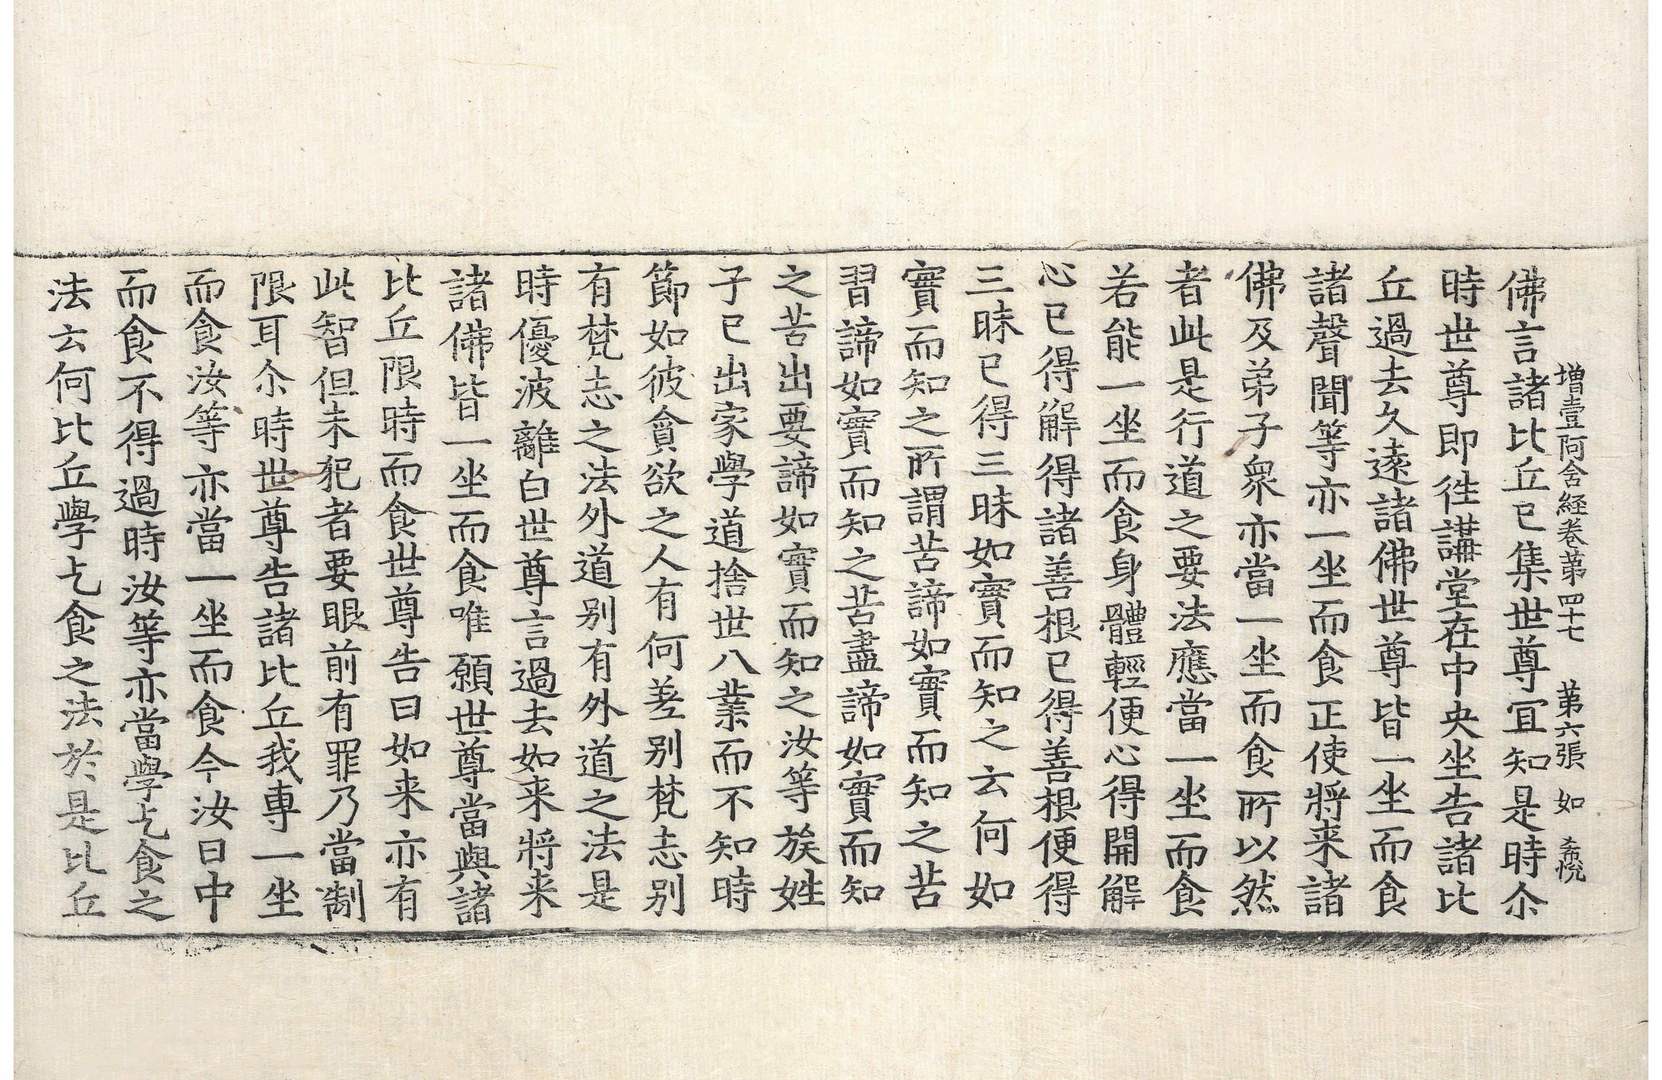 增壹阿含経卷苐四十七 苐六張 如 希悅
佛言諸比丘已集世尊冝知是時尒
時世尊即徃講堂在中央坐告諸比
丘過去久遠諸佛世尊皆一坐而食
諸聲聞等亦一坐而食正使將来諸
佛及弟子衆亦當一坐而食所以然
者此是行道之要法應當一坐而食
若能一坐而食身體輕便心得開解
心已得解得諸善根已得善根便得
三昧已得三昧如實而知之云何如
實而知之所謂苦諦如實而知之苦
習諦如實而知之苦盡諦如實而知
之苦出要諦如實而知之汝等族姓
子已出家學道捨世八業而不知時
節如彼貪欲之人有何差别梵志别
有梵志之法外道别有外道之法是
時優波離白世尊言過去如来將来
諸佛皆一坐而食唯願世尊當與諸
比丘限時而食世尊告曰如来亦有
此智但未犯者要眼前有罪乃當制
限耳尒時世尊告諸比丘我專一坐
而食汝等亦當一坐而食今汝日中
而食不得過時汝等亦當學乞食之
法云何比丘學乞食之法於是比丘